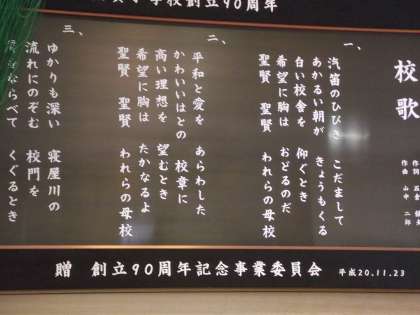 校創立90周年
校歌
一、
汽笛のひびき こだまして
あかるい朝が きょうもくる
白い校舎を 仰ぐとき
希望に胸は おどるのだ
聖賢 聖賢 われらの母校
二、
平和と愛を あらわした
かわいいはとの 校章に
高い理想を 望むとき
希望に胸は たかなるよ
聖賢 聖賢 われらの母校
三、
ゆかりも深い 寝屋川の
流れにのぞむ 校門を
ならべて くぐるとき
贈 創立90周年記念事業委員会 平成20.11.23